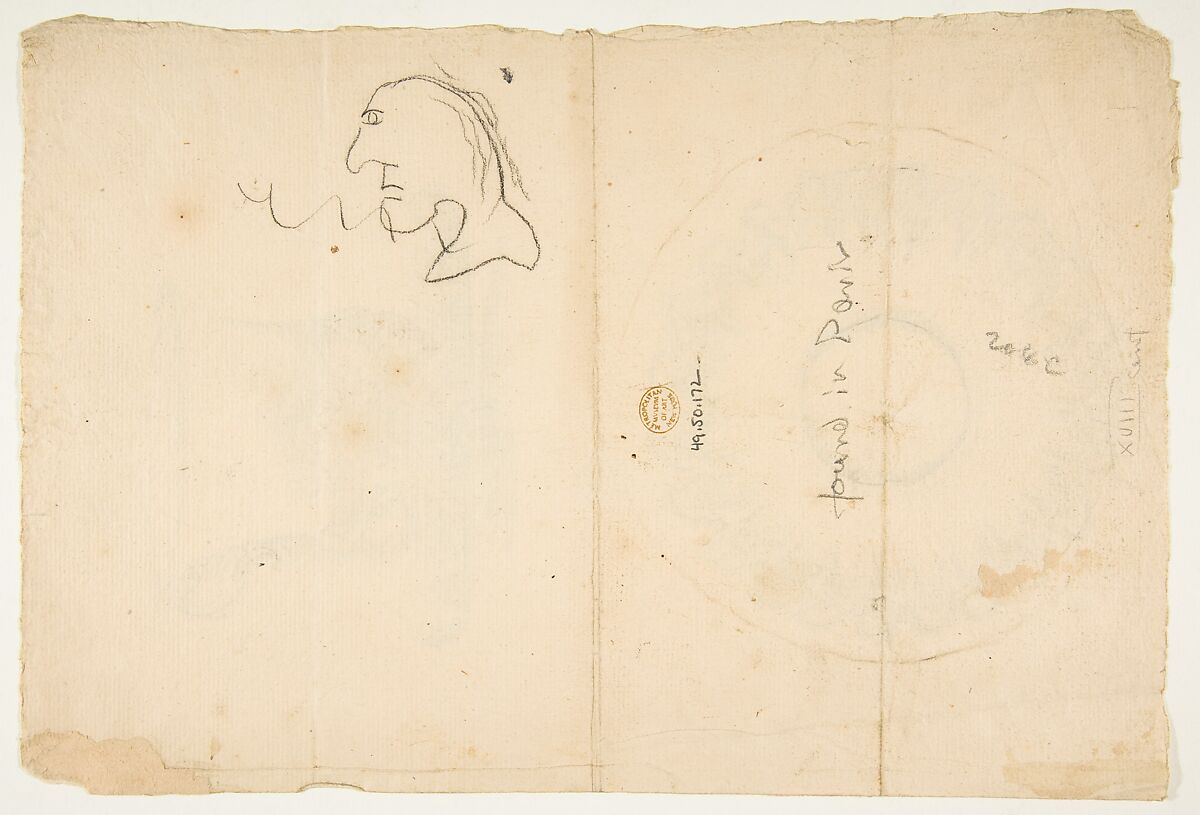 METROPOLITAN
MUSEUM
OF ART
NEW YORK
49.50.172
found in Paris
XVIII cent